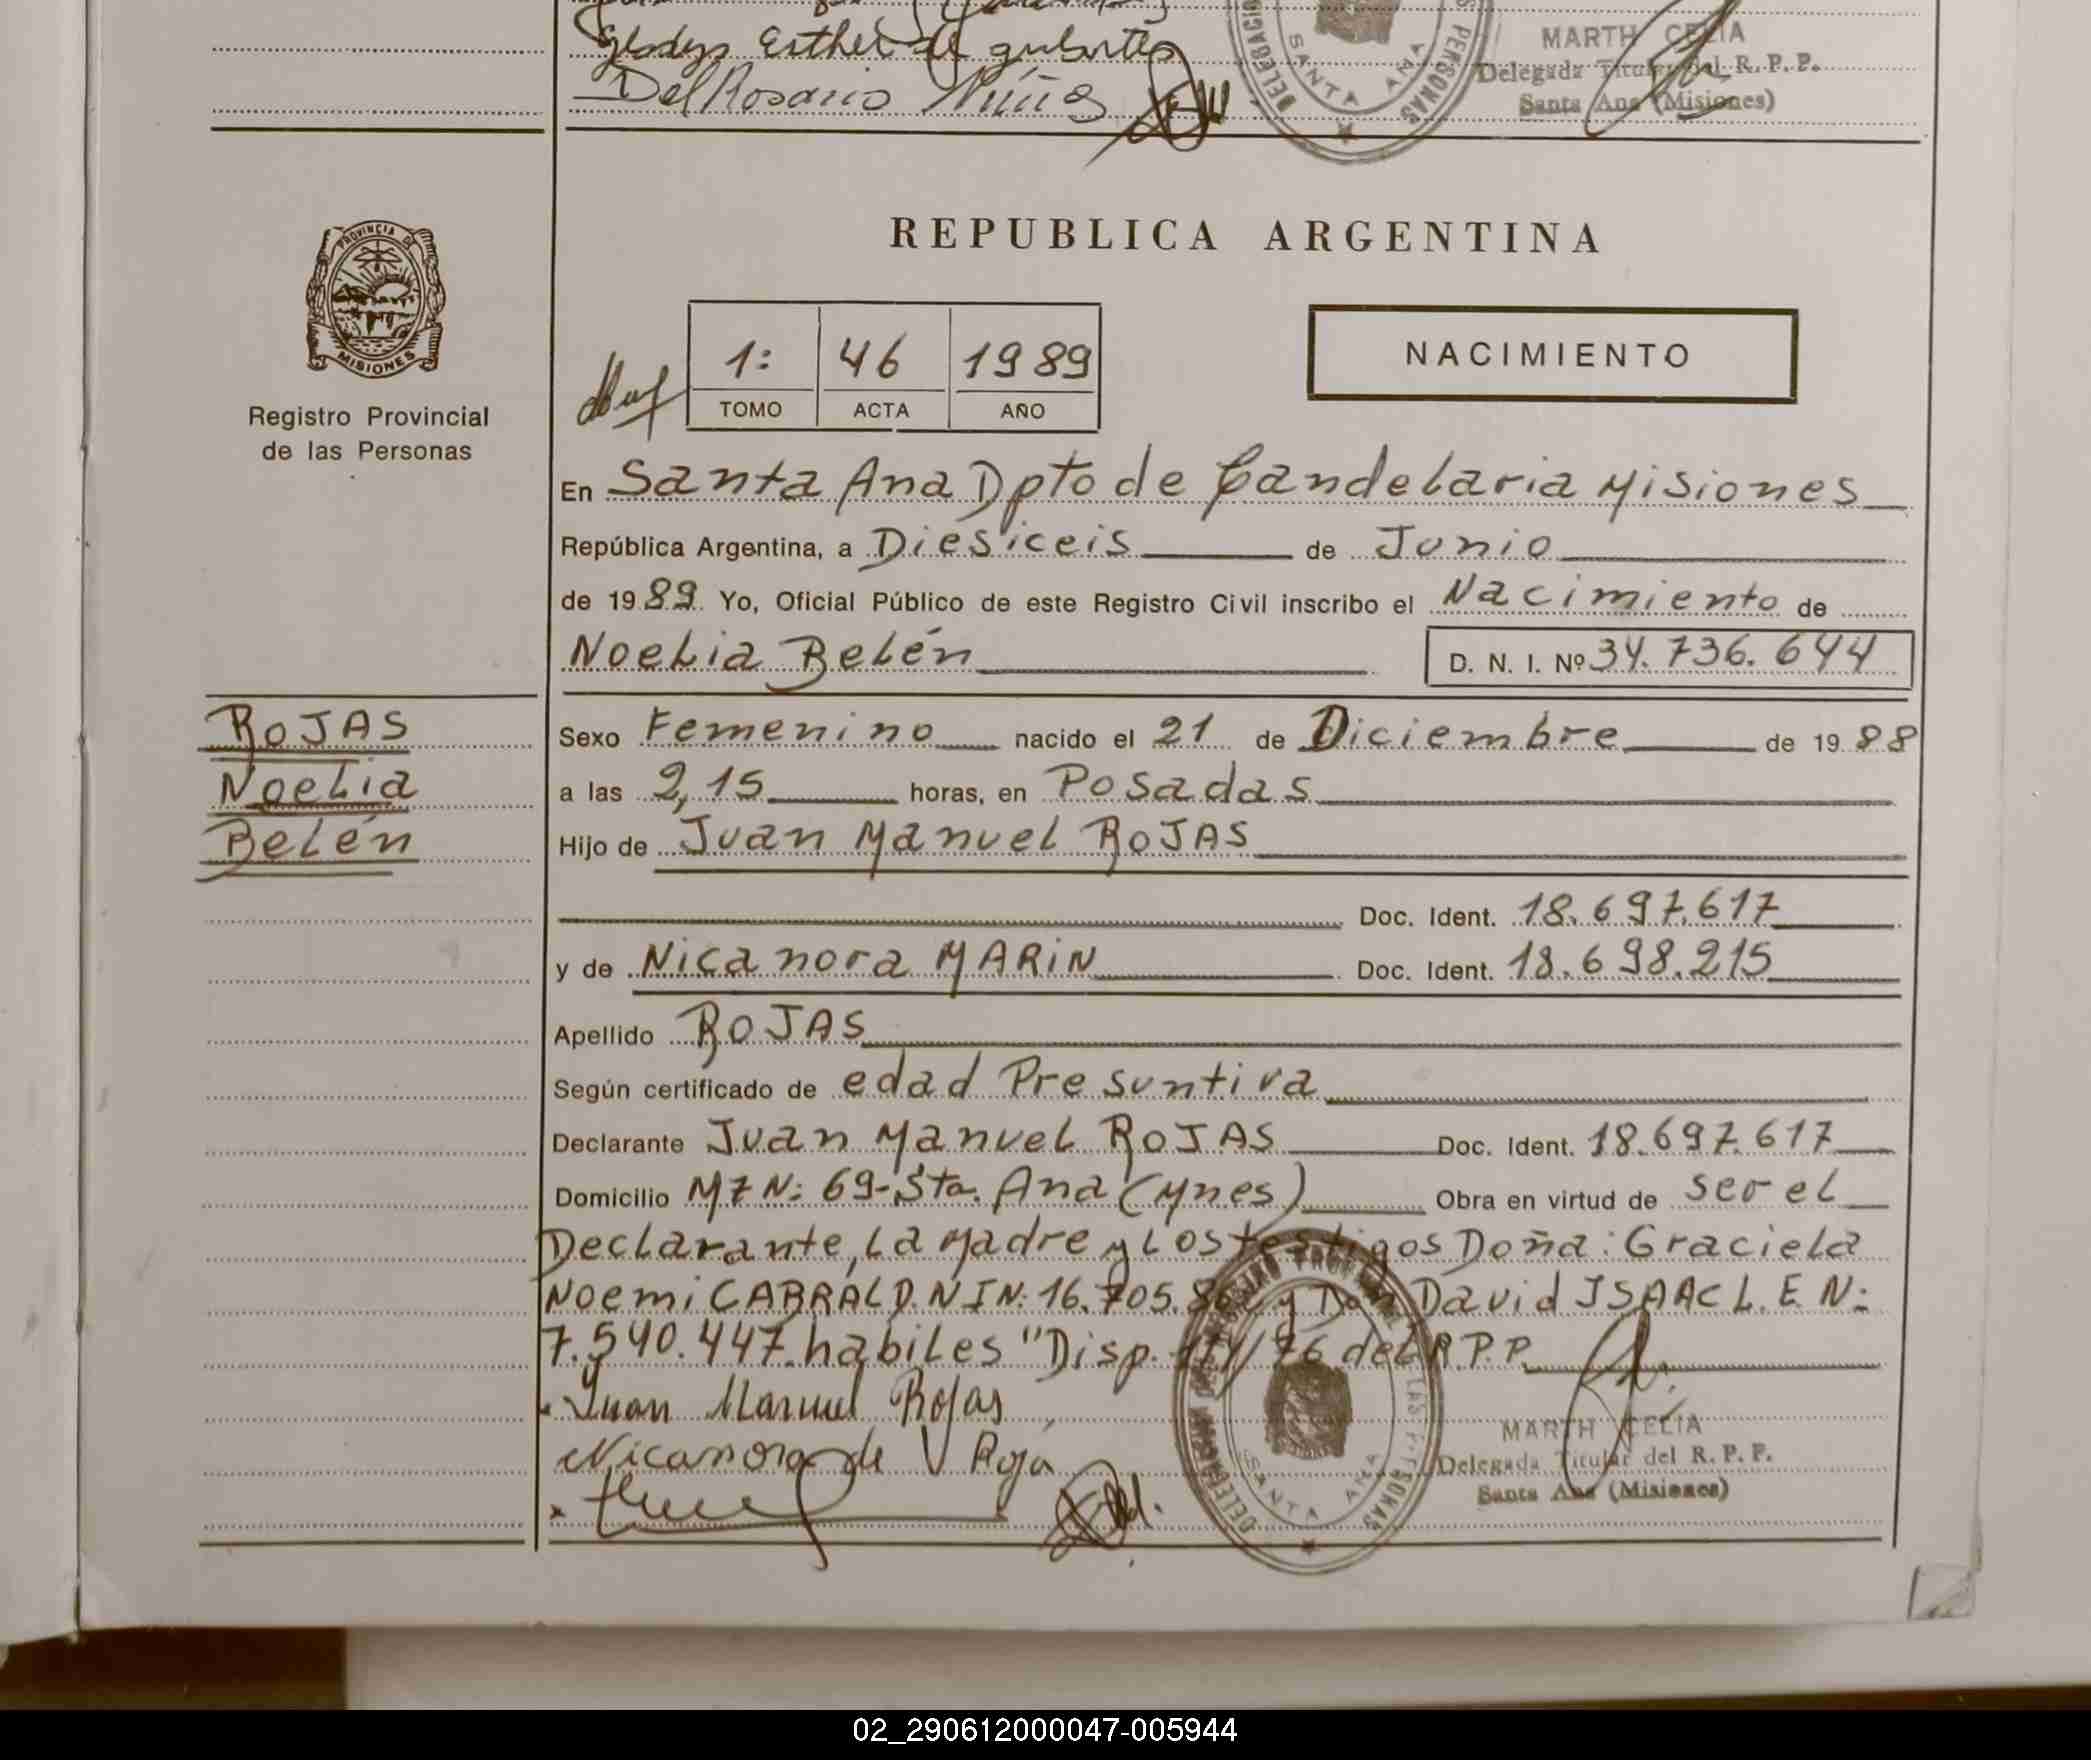 Gladys Esther de
Del Rosario Núñez
DELEGACIO PERSONAS
SANTA ANA
MARTH CELIA
Delegada Titular del R. P. P.
Santa Ana (Misiones)
PROVINCIA DE
MISIONES
Registro Provincial
de las Personas
REPUBLICA ARGENTINA
1: 46 1989
TOMO ACTA AÑO
NACIMIENTO
En Santa Ana Dpto de Candelaria Misiones
República Argentina, a Diesiceis de Junio
de 1989 Yo, Oficial Público de este Registro Civil inscribo el Nacimiento de
Noelia Belén D. N. I. Nº 34.736.644
ROJAS
Noelia
Belén
Sexo Femenino nacido el 21 de Diciembre de 1988
a las 2,15 horas, en Posadas
Hijo de Juan Manuel ROJAS
Doc. Ident. 18.697.617
y de Nicanora MARIN Doc. Ident. 18.698.215
Apellido ROJAS
Según certificado de edad Presuntiva
Declarante Juan Manuel ROJAS Doc. Ident. 18.697.617
Domicilio MZ N: 69-Sta. Ana (Mnes) Obra en virtud de ser el
Declarante, La Madre y Los testigos Doña: Graciela
Noemi CABRAL D.N I N: 16.705. y Don David ISAAC L. E N:
7.540.447. habiles "Disp. 171/76 del R.P.P.
Juan Manuel Rojas
Nicanora de Roja
SANTA ANA
MARTH CELIA
Delegada Titular del R. P. P.
Santa Ana (Misiones)
02_290612000047-005944